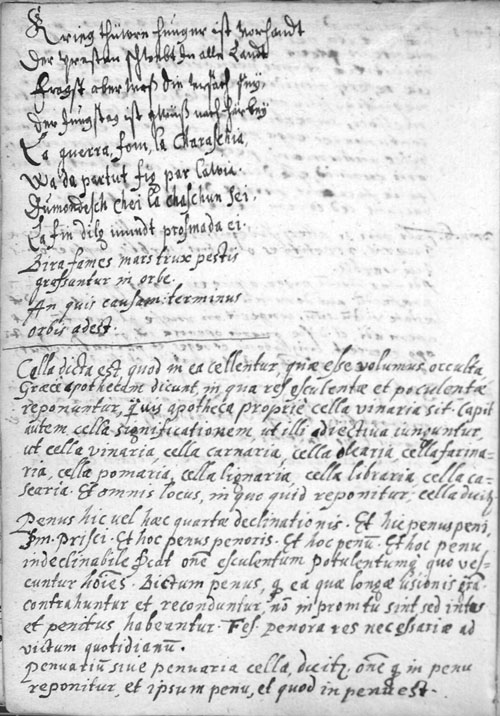 Krieg thüwre hunger ist vorhandt
Der presten schwebt in alle Landt
fragst aber was die ursach sey
Der Jüngstag ist gwüß nach härbey
La guerra, fom, la Charaschia,
Va da partut fig par la via.
Dumondesch chei la chaschun sei.
La fin dilg mundt prosmada ei.
Dira fames mars trux pestis
grassantur in orbe.
An quis causam: terminus
orbis adest.
Cella dicta est, quod in ea cellentur, quæ esse volumus occulta
Græci apothecam dicunt, in qua res esculentæ et poculentæ
reponuntur, quis apotheca proprie cella vinaria sit. Capit
autem cella significationem, ut illi adiectiva iunguntur,
ut cella vinaria, cella carnaria, cella olearia, cella farina-
ria, cella pomaria, cella lignaria, cella libraria, cella ca-
searia. Et omnis locus, in quo quid reponitur, cella
Penus hic vel hæc quartæ declinationis. Et hic penus peni,
Prisci. Et hoc penus penoris. Et hoc penū. Et hoc penu
indeclinabile onē esculentum potulentumq quo ves-
cuntur hoīes. Dictum penus, q ea quæ longæ usionis grā
contrahuntur et reconduntur, nō in promtu sint sed intus
et penitus habeantur. Res penora res necessariæ ad
victum quotidianū.
Penuatiū sive penuaria cella, onē q in penu
reponitur, et ipsum penu, et quod in penu est.